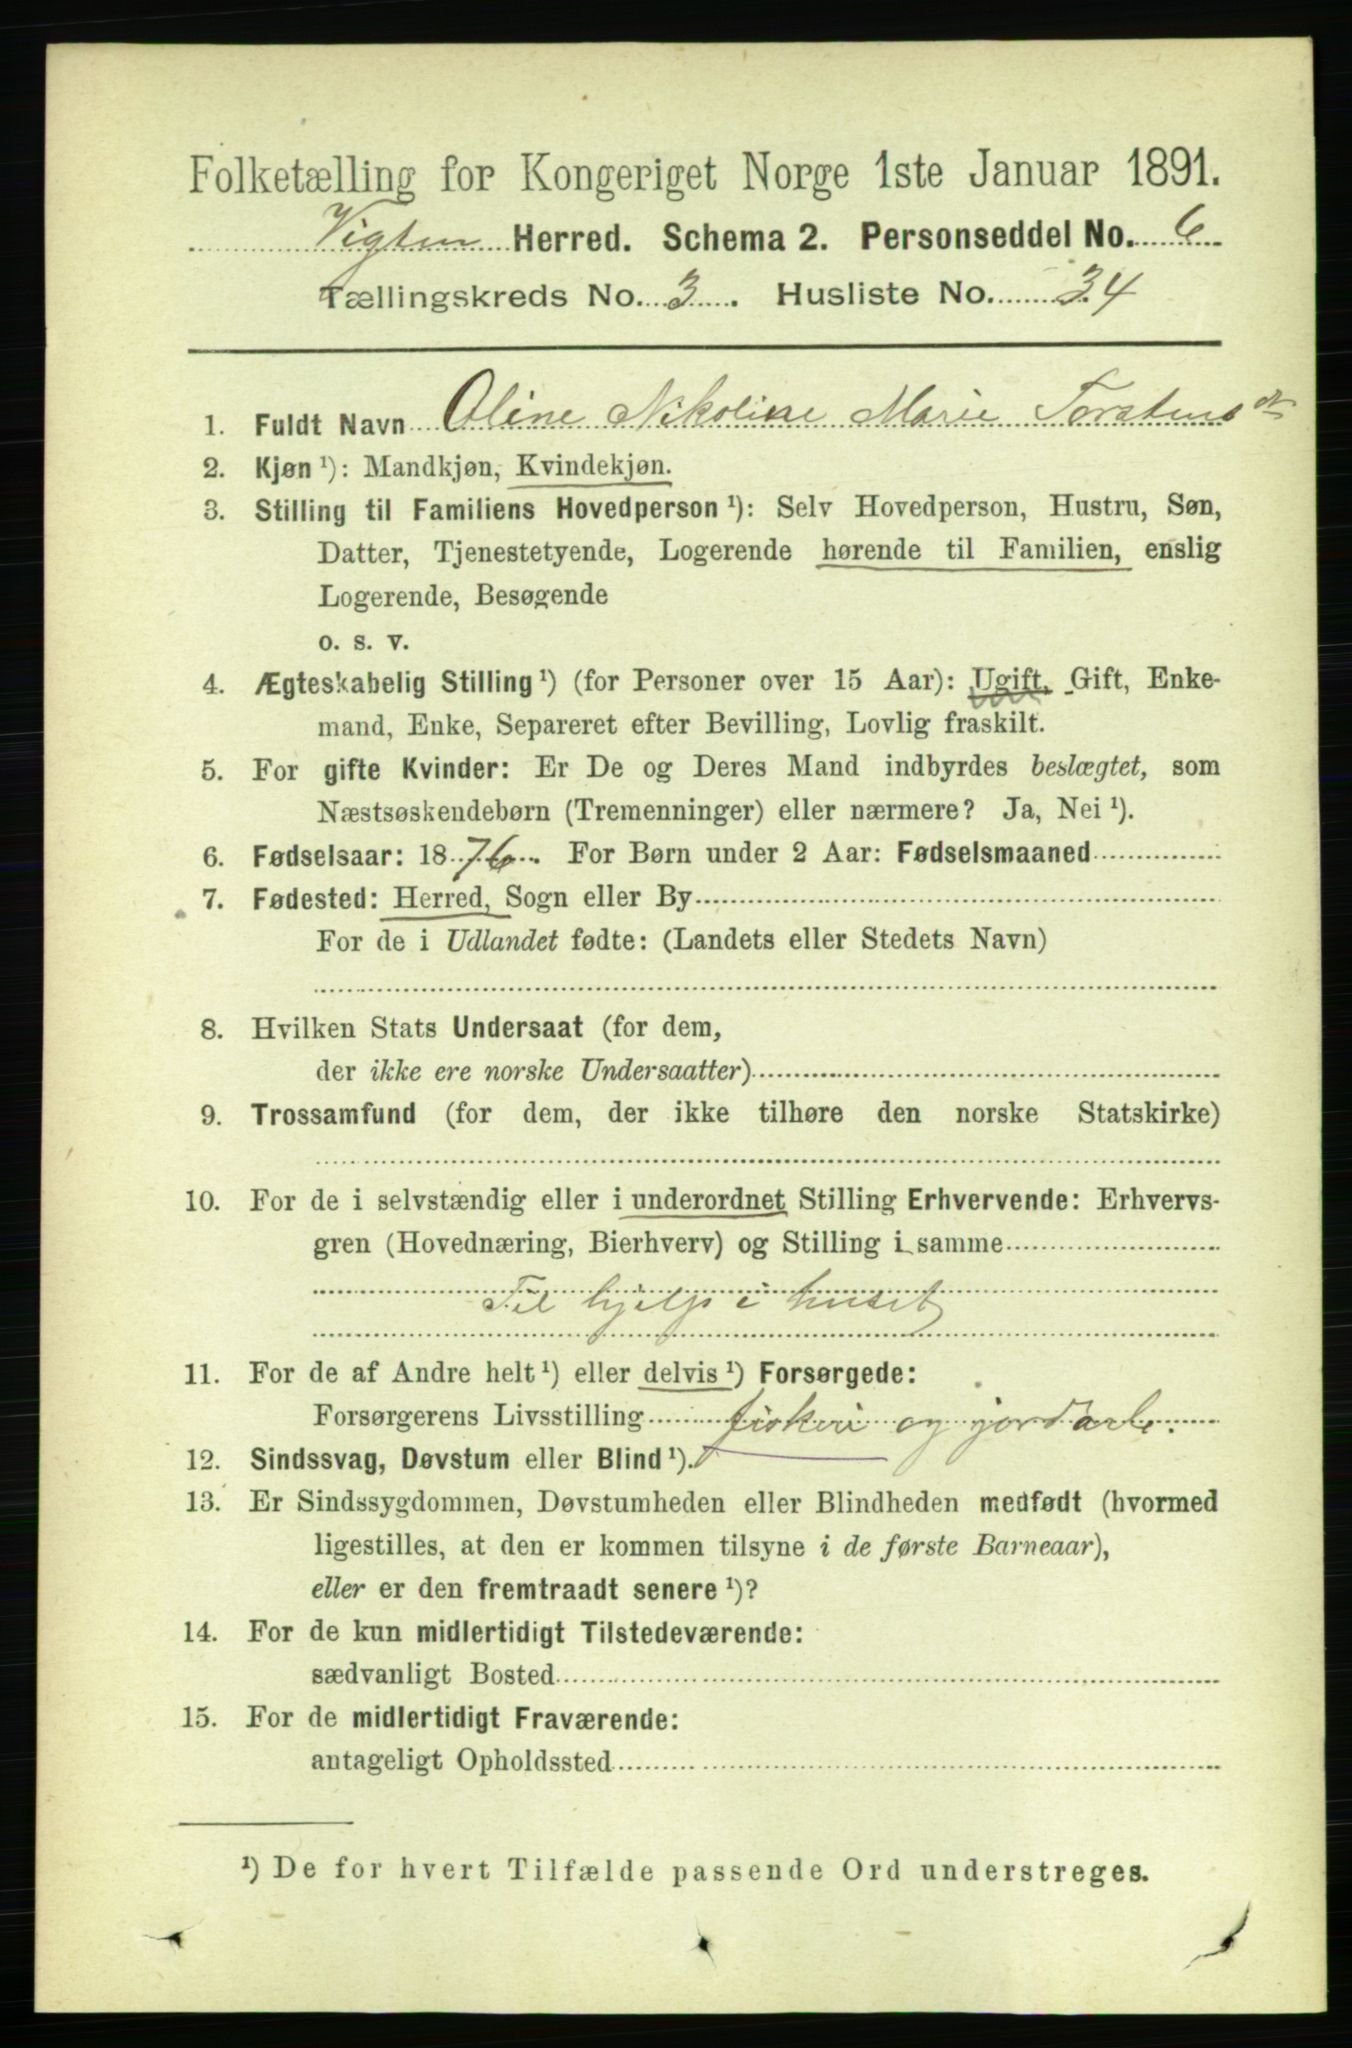 Folketælling for Kongeriget Norge 1ste Januar 1891.
Vigten Herred. Schema 2. Personseddel No. 6
Tællingskreds No. 3. Husliste No. 34
1. Fuldt Navn Oline Nikoline Marie Torstensdtr
2. Kjøn ¹): Mandkjøn, Kvindekjøn.
3. Stilling til Familiens Hovedperson ¹): Selv Hovedperson, Hustru, Søn,
Datter, Tjenestetyende, Logerende hørende til Familien, enslig
Logerende, Besøgende
o. s. v.
4. Ægteskabelig Stilling ¹) (for Personer over 15 Aar): Ugift, Gift, Enke-
mand, Enke, Separeret efter Bevilling, Lovlig fraskilt.
5. For gifte Kvinder: Er De og Deres Mand indbyrdes beslægtet, som
Næstsøskendebørn (Tremenninger) eller nærmere? Ja, Nei ¹).
6. Fødselsaar: 1876. For Børn under 2 Aar: Fødselsmaaned
7. Fødested: Herred, Sogn eller By
For de i Udlandet fødte: (Landets eller Stedets Navn)
8. Hvilken Stats Undersaat (for dem,
der ikke ere norske Undersaatter)
9. Trossamfund (for dem, der ikke tilhøre den norske Statskirke)
10. For de i selvstændig eller i underordnet Stilling Erhvervende: Erhvervs-
gren (Hovednæring, Bierhverv) og Stilling i samme
Til hjelp i huset
11. For de af Andre helt ¹) eller delvis ¹) Forsørgede:
Forsørgerens Livsstilling fiskeri og jordarb.
12. Sindssvag, Døvstum eller Blind ¹).
13. Er Sindssygdommen, Døvstumheden eller Blindheden medfødt (hvormed
ligestilles, at den er kommen tilsyne i de første Barneaar),
eller er den fremtraadt senere ¹)?
14. For de kun midlertidigt Tilstedeværende:
sædvanligt Bosted
15. For de midlertidigt Fraværende:
antageligt Opholdssted
¹) De for hvert Tilfælde passende Ord understreges.